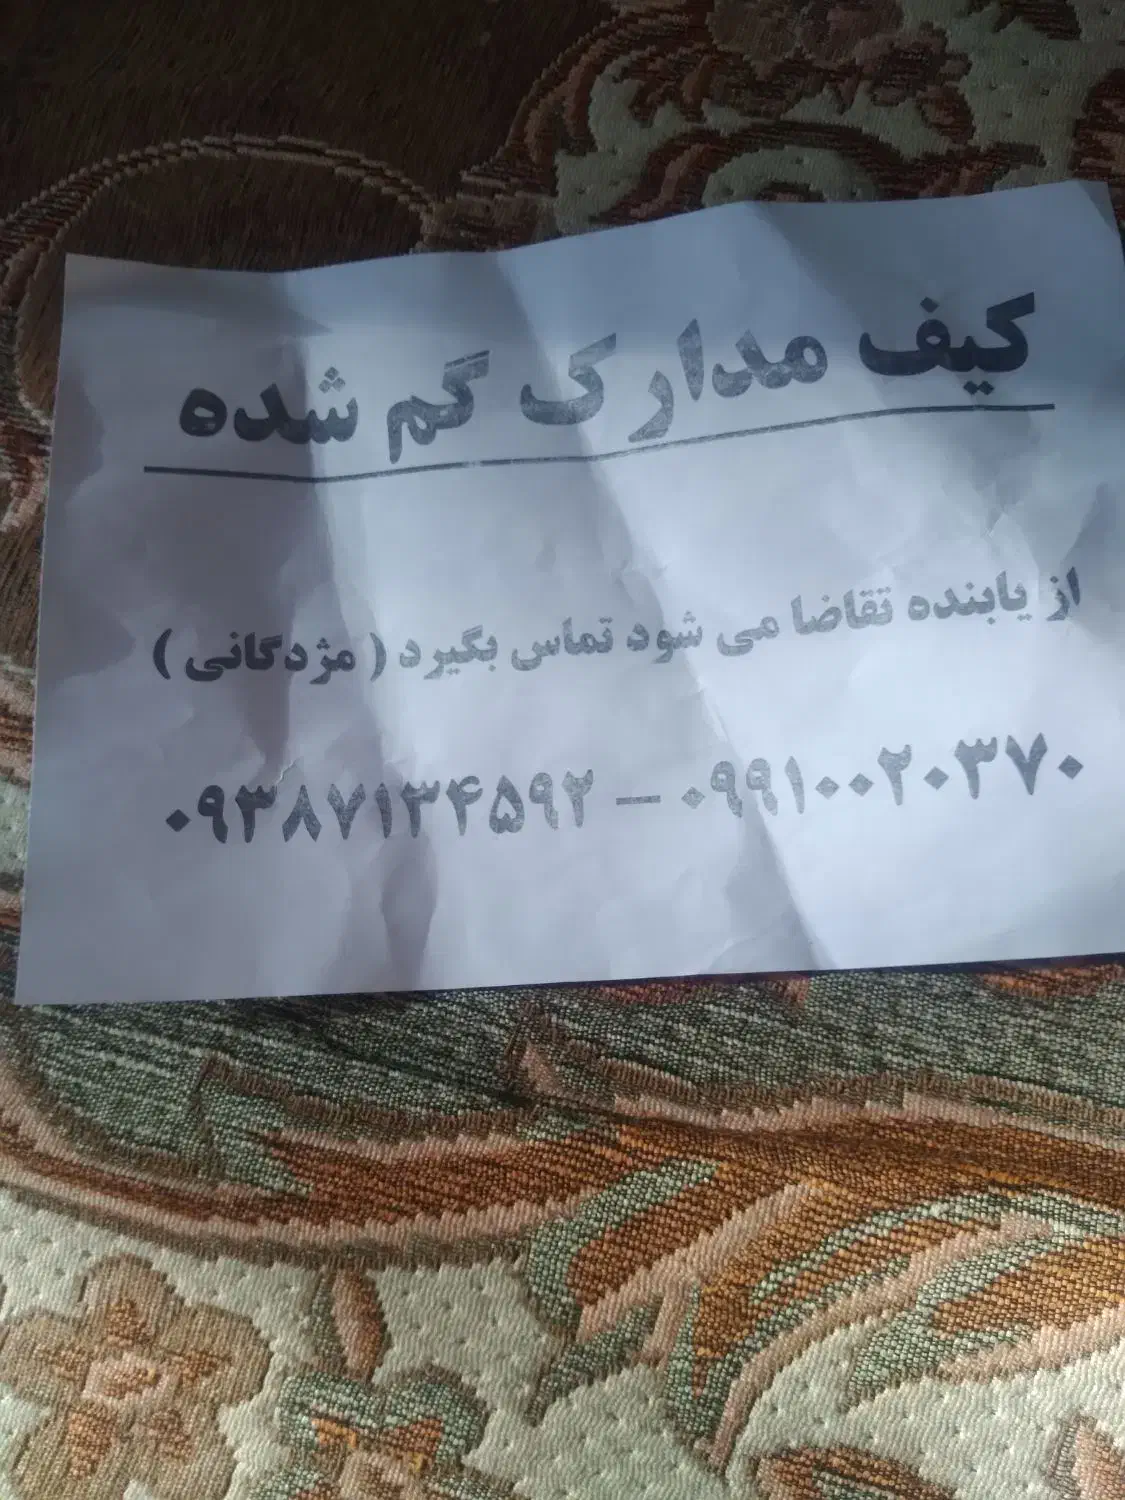 کیف مدارک گم شده
از یابنده تقاضا می شود تماس بگیرد ( مژدگانی )
۰۹۳۸۷۱۳۴۵۹۲ – ۰۹۹۱۰۰۲۰۳۷۰